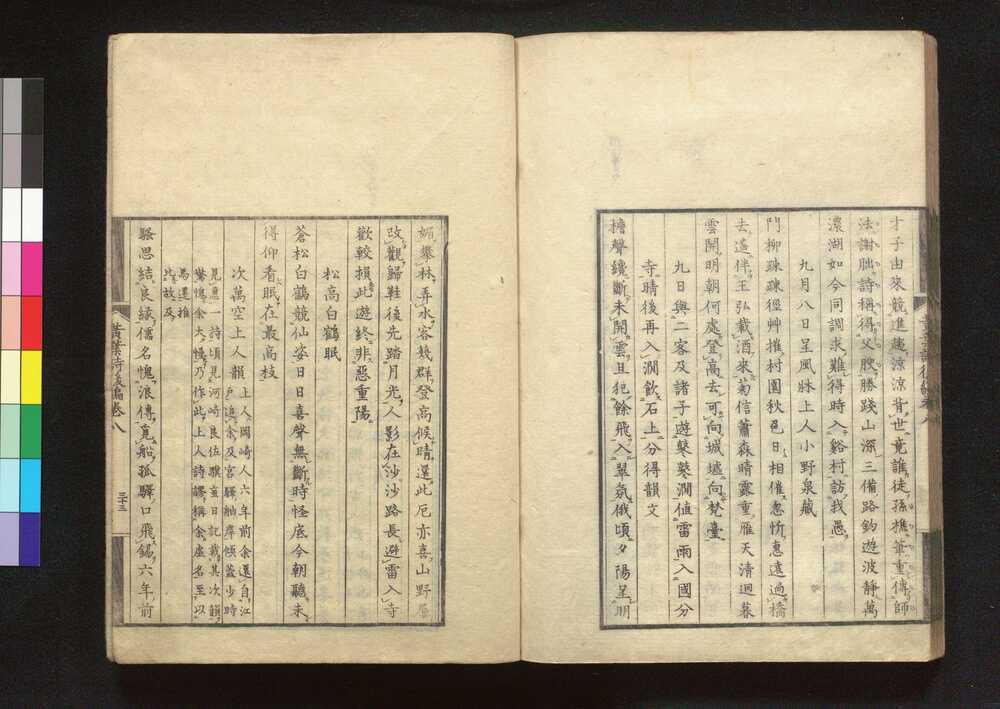 才子由來競進趣涼涼背世竟誰徒孫樵筆重傳師
法謝朓詩稱得父腴勝踐山深三備路釣遊波靜萬
濃湖如今同調求難得時入谿村訪我愚
九月八日呈風牀上人小野泉藏
門柳疎疎徑艸摧村園秋色日相催忽忻惠遠過橋
去遙伴王弘載酒來菊信蕭森晴露重雁天清迥暮
雲開明朝何處登高去可向城墟向梵臺
九日與二客及諸子遊槼䕫澗値雷雨入國分
寺晴後再入澗飲石上分得韻文
檐聲纔斷未開雲且犯餘飛入翠氛俄頃夕陽呈明
媚攀林弄水客幾群登高候晴還此厄亦喜山野層
改觀歸鞋後先踏月光人影在沙沙路長避雷入寺
歡較損此遊終非惡重陽
松高白鶴眠
蒼松白鶴競仙姿日日喜聲無斷時怪底今朝聽未
得仰看眠在最高枝
次萬空上人韻
上人岡崎人六年前余還自江
戶追余及宮驛舳岸傾蓋少時
見惠一詩頃見河崎良佐驥蝱日記載其次韻
慙愧余大慢乃作此上人詩謬稱余虛名至以
馬還推
此故及
騷思結良緣儒名愧浪傳覓船孤驛口飛錫六年前
黃葉詩後編卷八
三十三